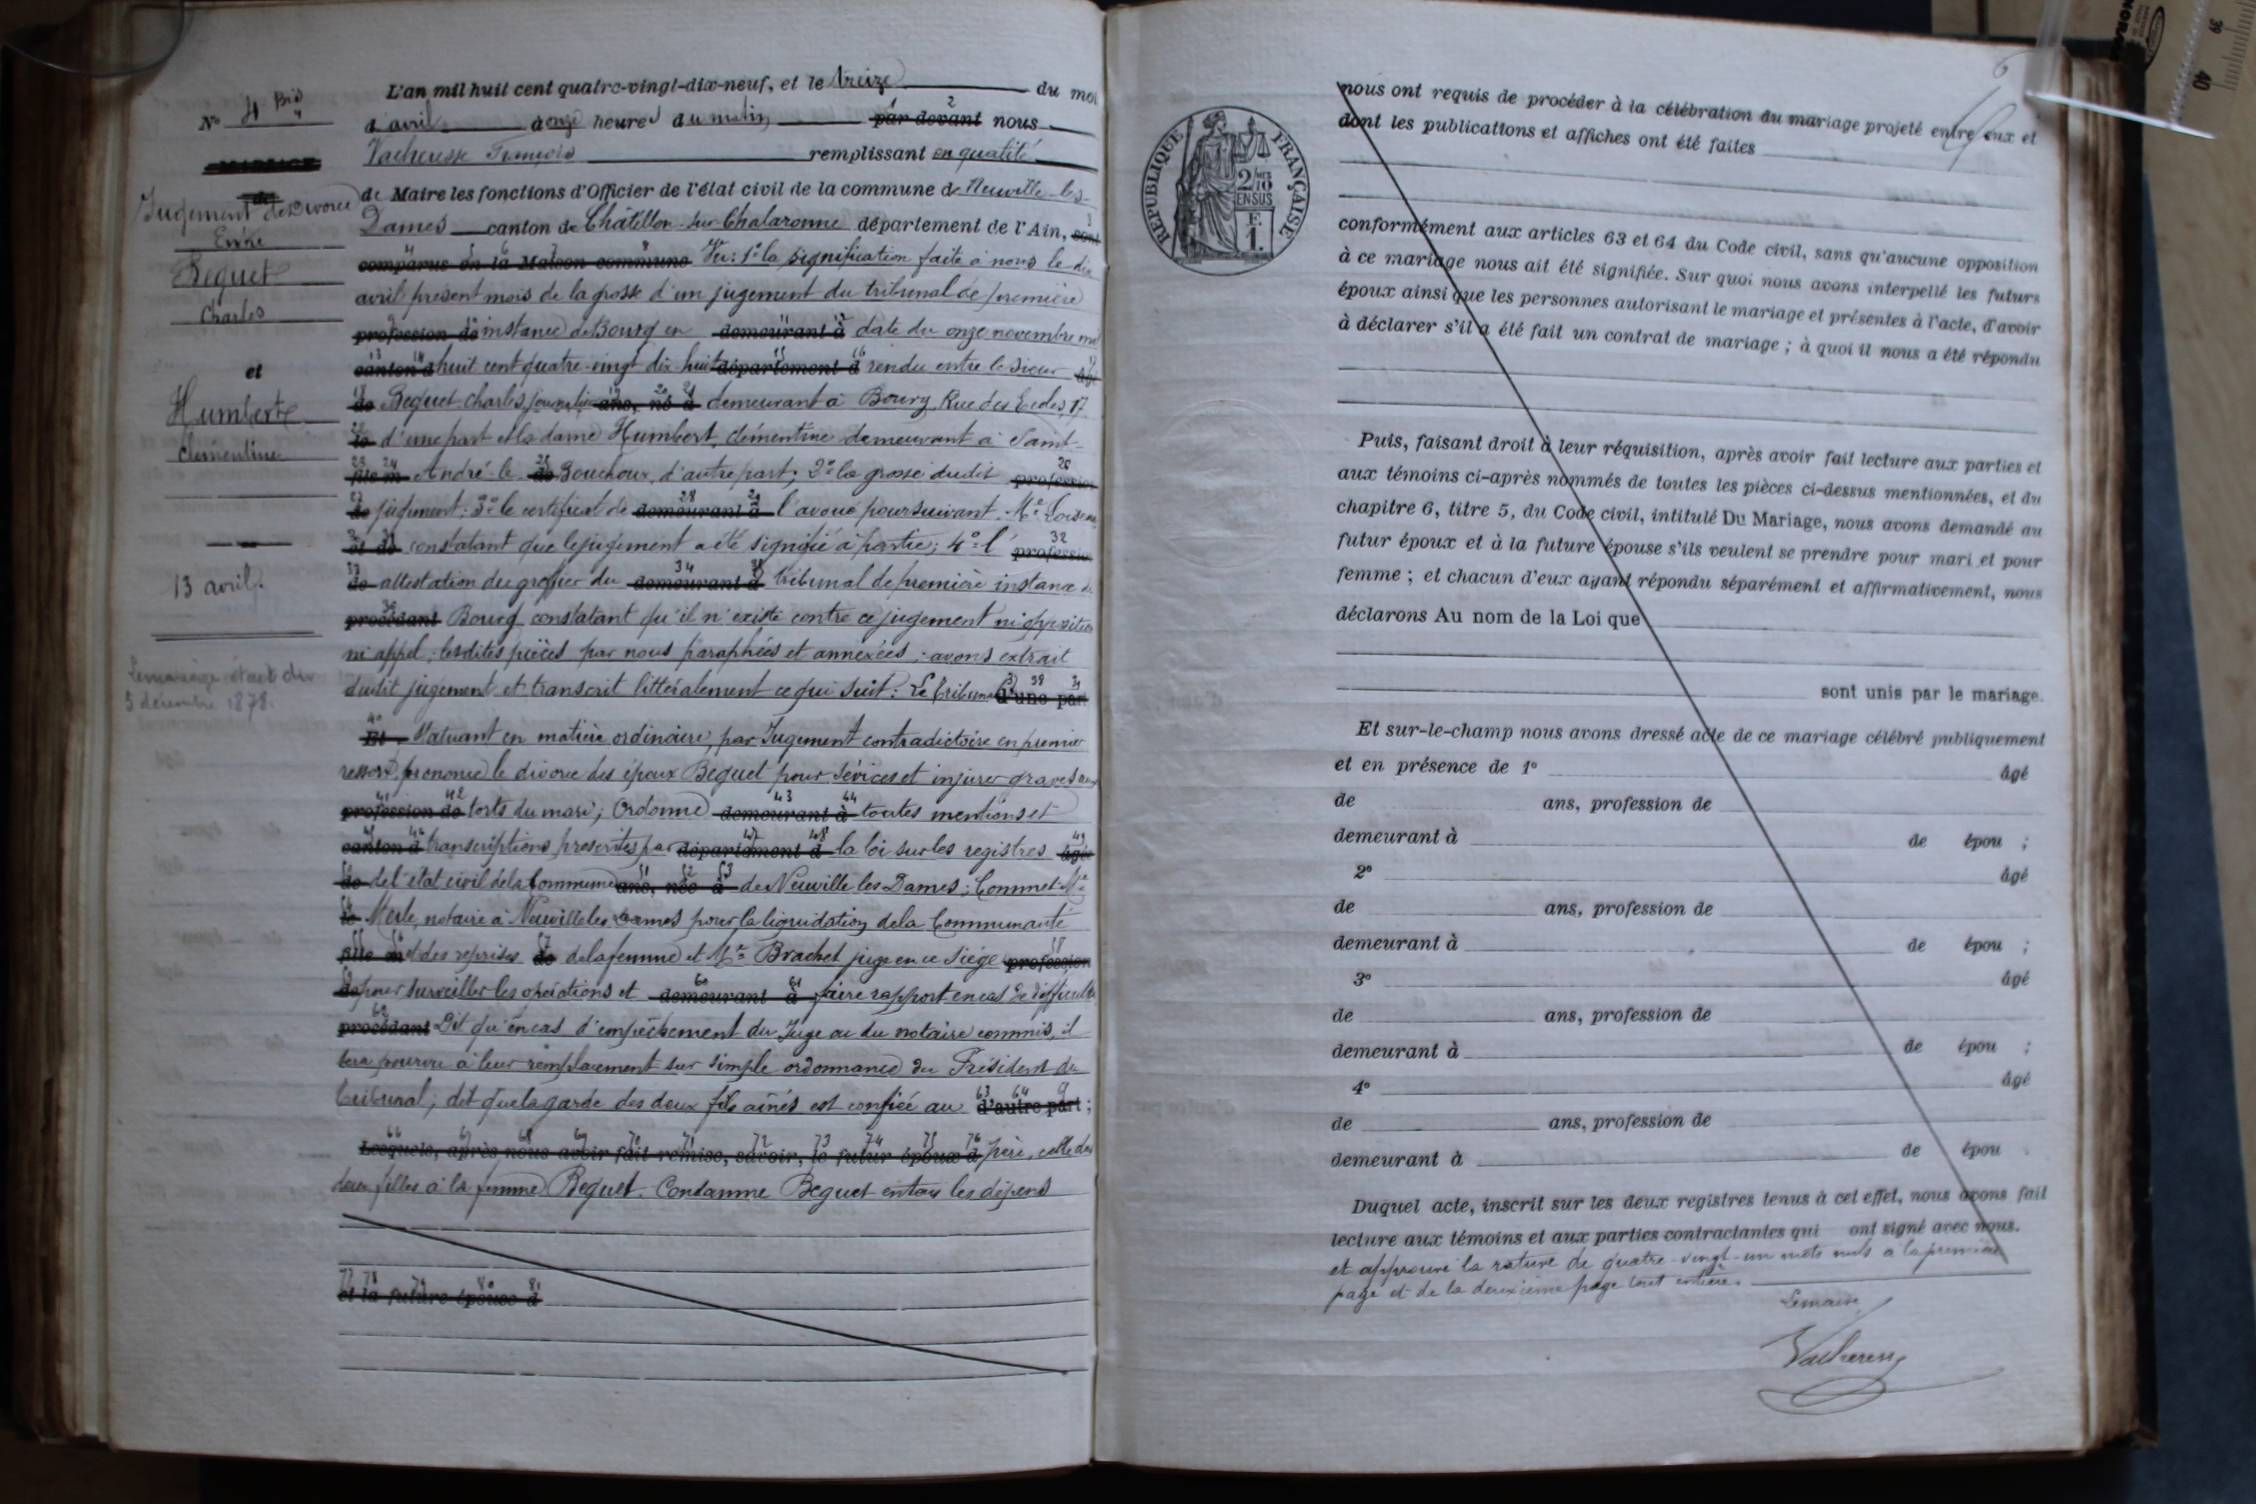 N° 4 Bis
Jugement de Divorce
Entre
Beguet
Charles
et
Humbert
Clémentine
13 avril.
Le mariage était du
5 décembre 1878.
L'an mil huit cent quatre-vingt-dix-neuf, et le treize du moi
d'avril à onze heures du matin par devant nous
Vacheresse François remplissant en qualité
de Maire les fonctions d'Officier de l'état civil de la commune de Neuville-les-
Dames canton de Châtillon-sur-Chalaronne département de l'Ain, sont
comparus en la Maison commune Vu: 1° la signification faite à nous le dix
avril présent mois de la grosse d'un jugement du tribunal de première
profession de instance de Bourg en demeurant à date du onze novembre mil
canton d huit cent quatre-vingt dix-huit département d rendu entre le sieur âgé
de Beguet Charles, journalier ans, né à demeurant à Bourg, Rue des Ecoles, 17
le d'une part et la dame Humbert, Clémentine demeurant à Saint-
fils m André le de Bouchoux, d'autre part; 2° la grosse dudit profession
de jugement; 3° le certificat de demeurant à l'avoué poursuivant. Me Loiseau
et de constatant que le jugement a été signifié à partie; 4° l' profession
de attestation du greffier du demeurant à tribunal de première instance de
procédant Bourg constatant qu'il n'existe contre ce jugement ni opposition
ni appel; lesdites pièces par nous paraphées et annexées; avons extrait
dudit jugement et transcrit littéralement ce qui suit: Le tribunal d'une part
Et Statuant en matière ordinaire, par Jugement contradictoire en premier
ressort, prononce le divorce des époux Beguet pour sévices et injures graves aux
profession de torts du mari; Ordonne demeurant à toutes mentions et
canton d transcriptions prescrites par département d la loi sur les registres âgée
de de l'état civil de la Commune ans, née à de Neuville les Dames; Commet Me
le Merle, notaire à Neuville les Dames pour la liquidation de la Communauté
fille m et des reprises de de la femme et Mr Brachet juge en ce siège profession
de pour surveiller les opérations et demeurant à faire rapport en cas de difficultés
procédant Dit qu'en cas d'empêchement du Juge ou du notaire commis, il
sera pourvu à leur remplacement sur simple ordonnance du Président du
tribunal; dit que la garde des deux fils aînés est confiée au d'autre part;
Lesquels, après nous avoir fait remise, savoir, le futur époux d père, celle des
deux filles à la femme Beguet. Condamne Beguet en tous les dépens
et la future épouse d
6
RÉPUBLIQUE FRANÇAISE
2/10
EN SUS
F.
1.
nous ont requis de procéder à la célébration du mariage projeté entre eux et
dont les publications et affiches ont été faites
conformément aux articles 63 et 64 du Code civil, sans qu'aucune opposition
à ce mariage nous ait été signifiée. Sur quoi nous avons interpellé les futurs
époux ainsi que les personnes autorisant le mariage et présentes à l'acte, d'avoir
à déclarer s'il a été fait un contrat de mariage; à quoi il nous a été répondu
Puis, faisant droit à leur réquisition, après avoir fait lecture aux parties et
aux témoins ci-après nommés de toutes les pièces ci-dessus mentionnées, et du
chapitre 6, titre 5, du Code civil, intitulé Du Mariage, nous avons demandé au
futur époux et à la future épouse s'ils veulent se prendre pour mari et pour
femme; et chacun d'eux ayant répondu séparément et affirmativement, nous
déclarons Au nom de la Loi que
sont unis par le mariage.
Et sur-le-champ nous avons dressé acte de ce mariage célébré publiquement
et en présence de 1° âgé
de ans, profession de
demeurant à de épou ;
2° âgé
de ans, profession de
demeurant à de épou ;
3° âgé
de ans, profession de
demeurant à de épou ;
4° âgé
de ans, profession de
demeurant à de épou
Duquel acte, inscrit sur les deux registres tenus à cet effet, nous avons fait
lecture aux témoins et aux parties contractantes qui ont signé avec nous.
et approuvé la rature de quatre-vingt-un mots nuls à la première
page et de la deuxième page tout entière.
Le maire
Vacheresse